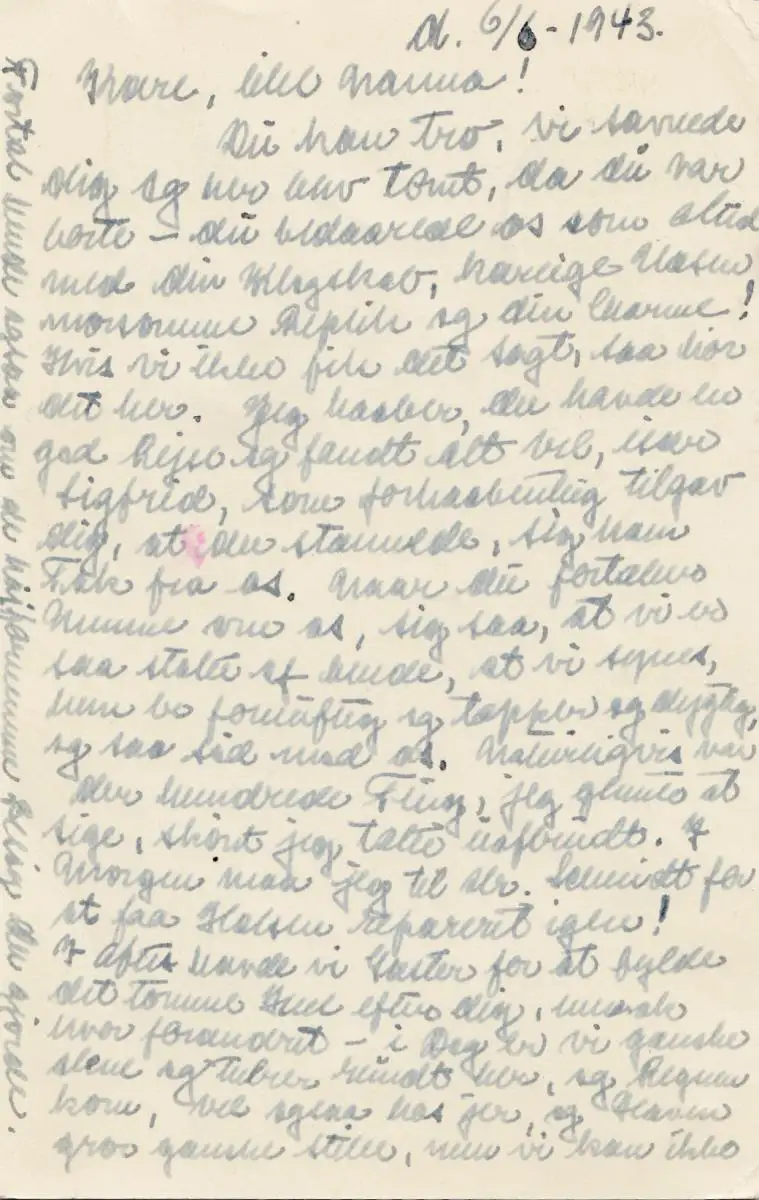 d. 6/6 - 1943.
Kære, lille Nanna!
Du kan tro, vi savnede
dig og her blev tomt, da du var
borte - du bedaarede os som altid
med din Klogskab, kærlige Væsen
morsomme Replik og din Charme!
Hvis vi ikke fik det sagt, saa hør
det her. Jeg haaber, du havde en
god Rejse og fandt alt vel, især
Sigfrid, som forhaabentlig tilgav
dig, at du stannede, sig ham
Tak fra os. Naar du fortæller
Mumme om os, sig saa, at vi er
saa stolte af hende, at vi synes,
hun er fornuftig og tapper og dygtig,
og saa sød mod os. Naturligvis var
der hundrede Ting, jeg glemte at
sige, skønt jeg talte uafbrudt. I
Morgen maa jeg til Dr. Schmidt for
at faa Halsen repareret igen!
I Aftes havde vi Gæster for at fylde
det tomme Hul efter dig,
hvor forandret - i Dag er vi ganske
alene og rundt her, og Regnen
kom, vel ogsaa hos jer, og Haven
gror ganske stille, men vi kan ikke
Fortæl hende ogsaa om de højfornemme Besøg du gjorde.